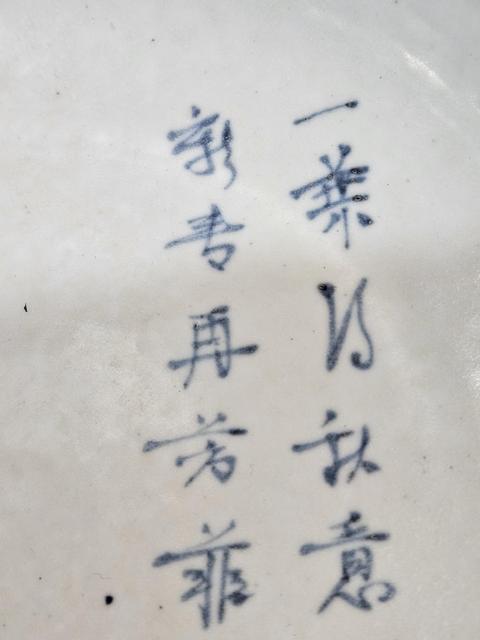 一葉得秋意
新春再芳菲